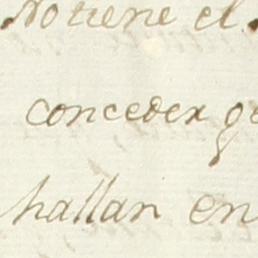 No tiene el
conceder ge
hallan en